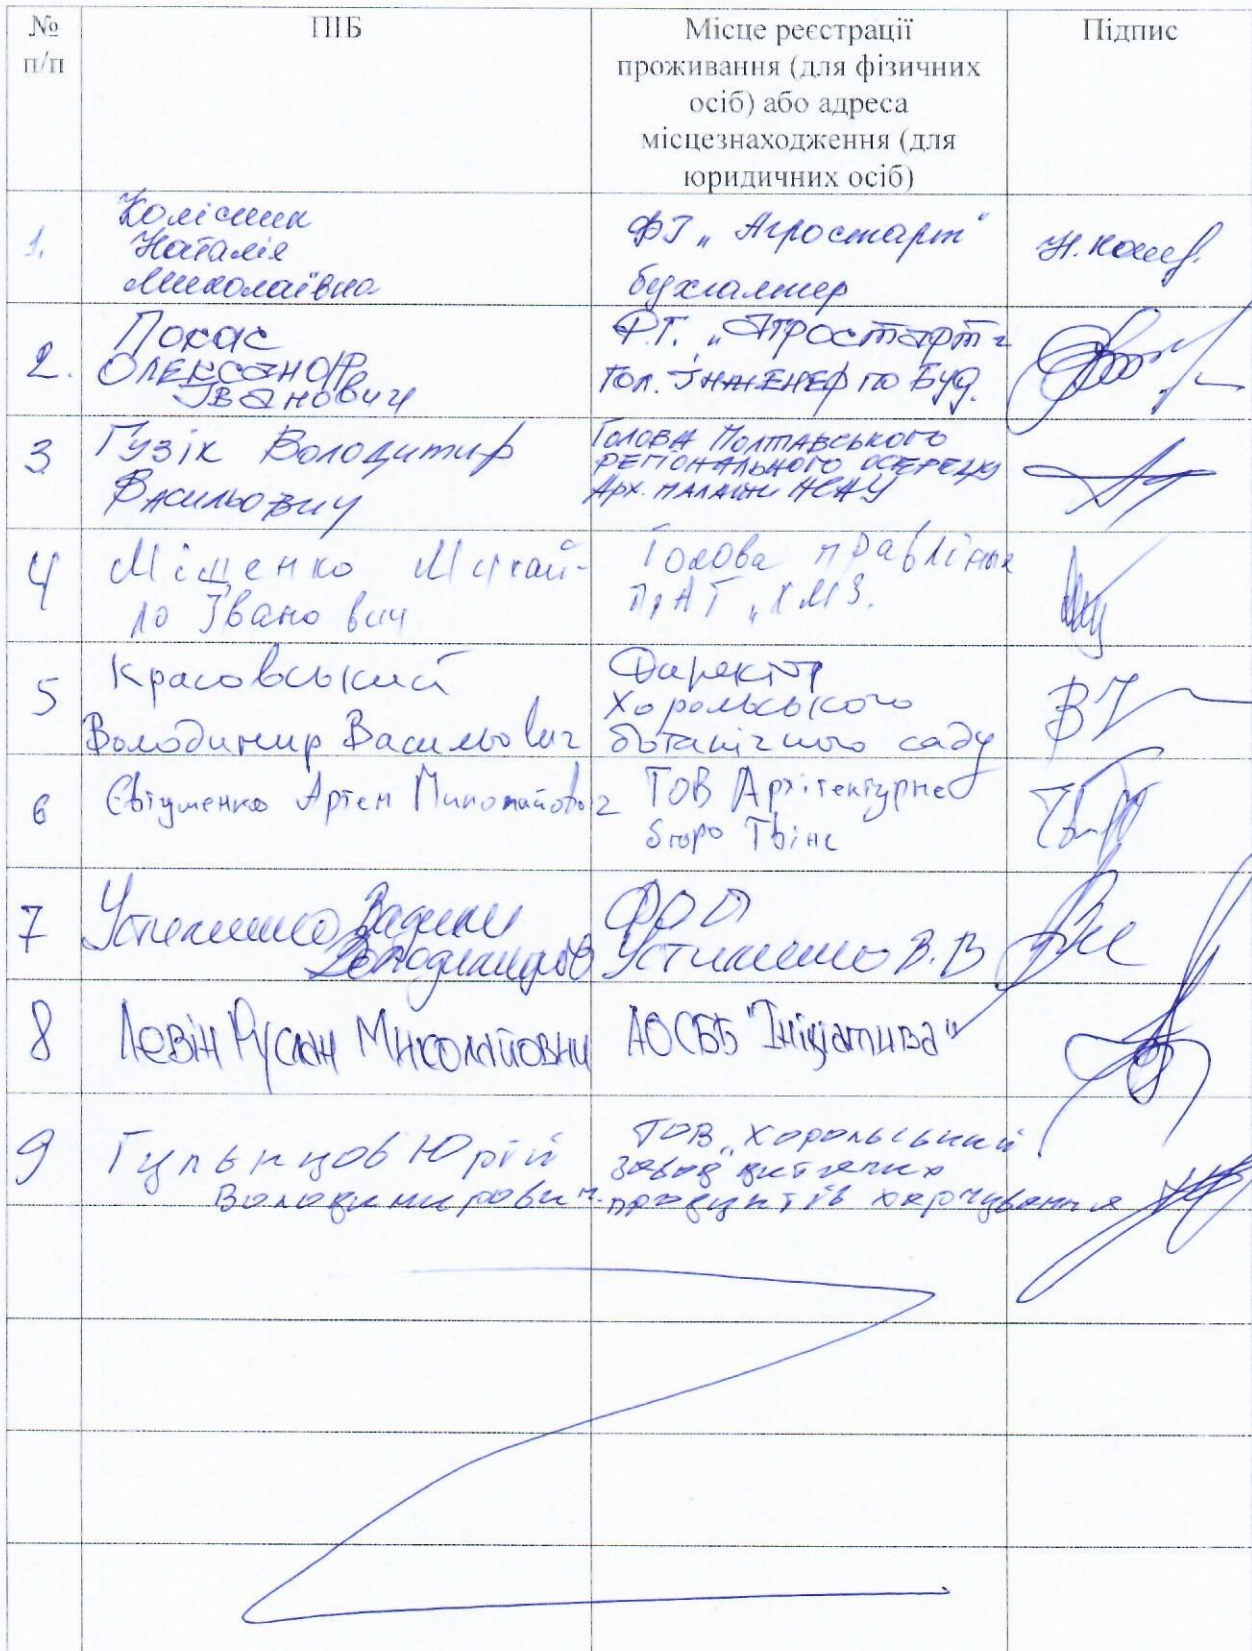 № п/п
ПІБ
Місце реєстрації
проживання (для фізичних
осіб) або адреса
місцезнаходження (для
юридичних осіб)
Підпис
1.
Колісник
Наталія
Миколаївна
ФГ „Агростарт"
бухгалтер
2.
Покас
Олександр
Іванович
Ф.Г. „Агростарт"
Гол. Інженер по Буд.
3
Гузік Володимир
Васильович
Голова Полтавського
регіонального осередку
Арх. палати НСАУ
4
Міщенко Михай-
ло Іванович
Голова правління
ПрАТ „ХМЗ.
5
Красовський
Володимир Васильович
Директор
Хорольського
ботанічного саду
6
Євтушенко Артем Миколайович
ТОВ Архітектурне
бюро Твінс
7
Устименко Вадим
ФОП
Устименко В.В
8
Левін Руслан Миколайович
АОСББ "Ініціатива"
9
Гульнцов Юрій
Володимирович
ТОВ „Хорольський
завод дитячих
продуктів харчування